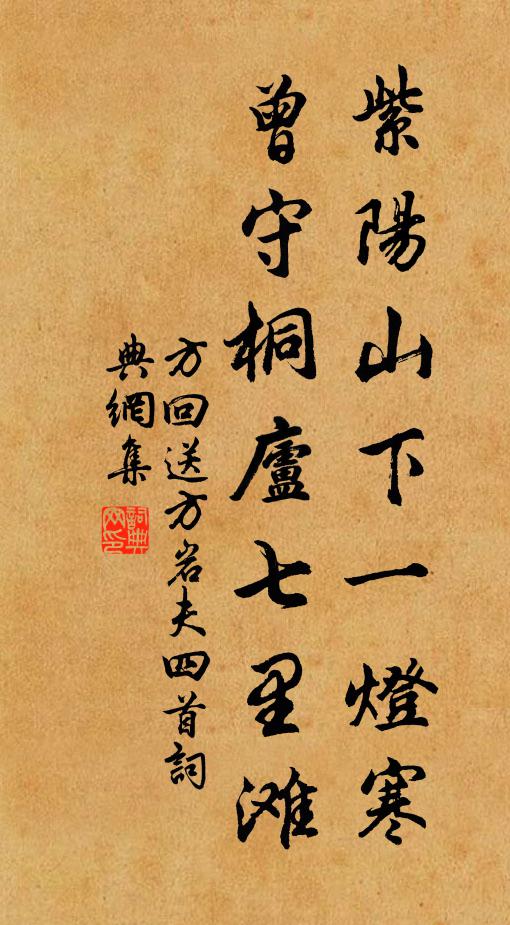 紫陽山下一燈寒
曾守桐廬七里滩
方回送方岩夫四首詞
典網集
詞典網印